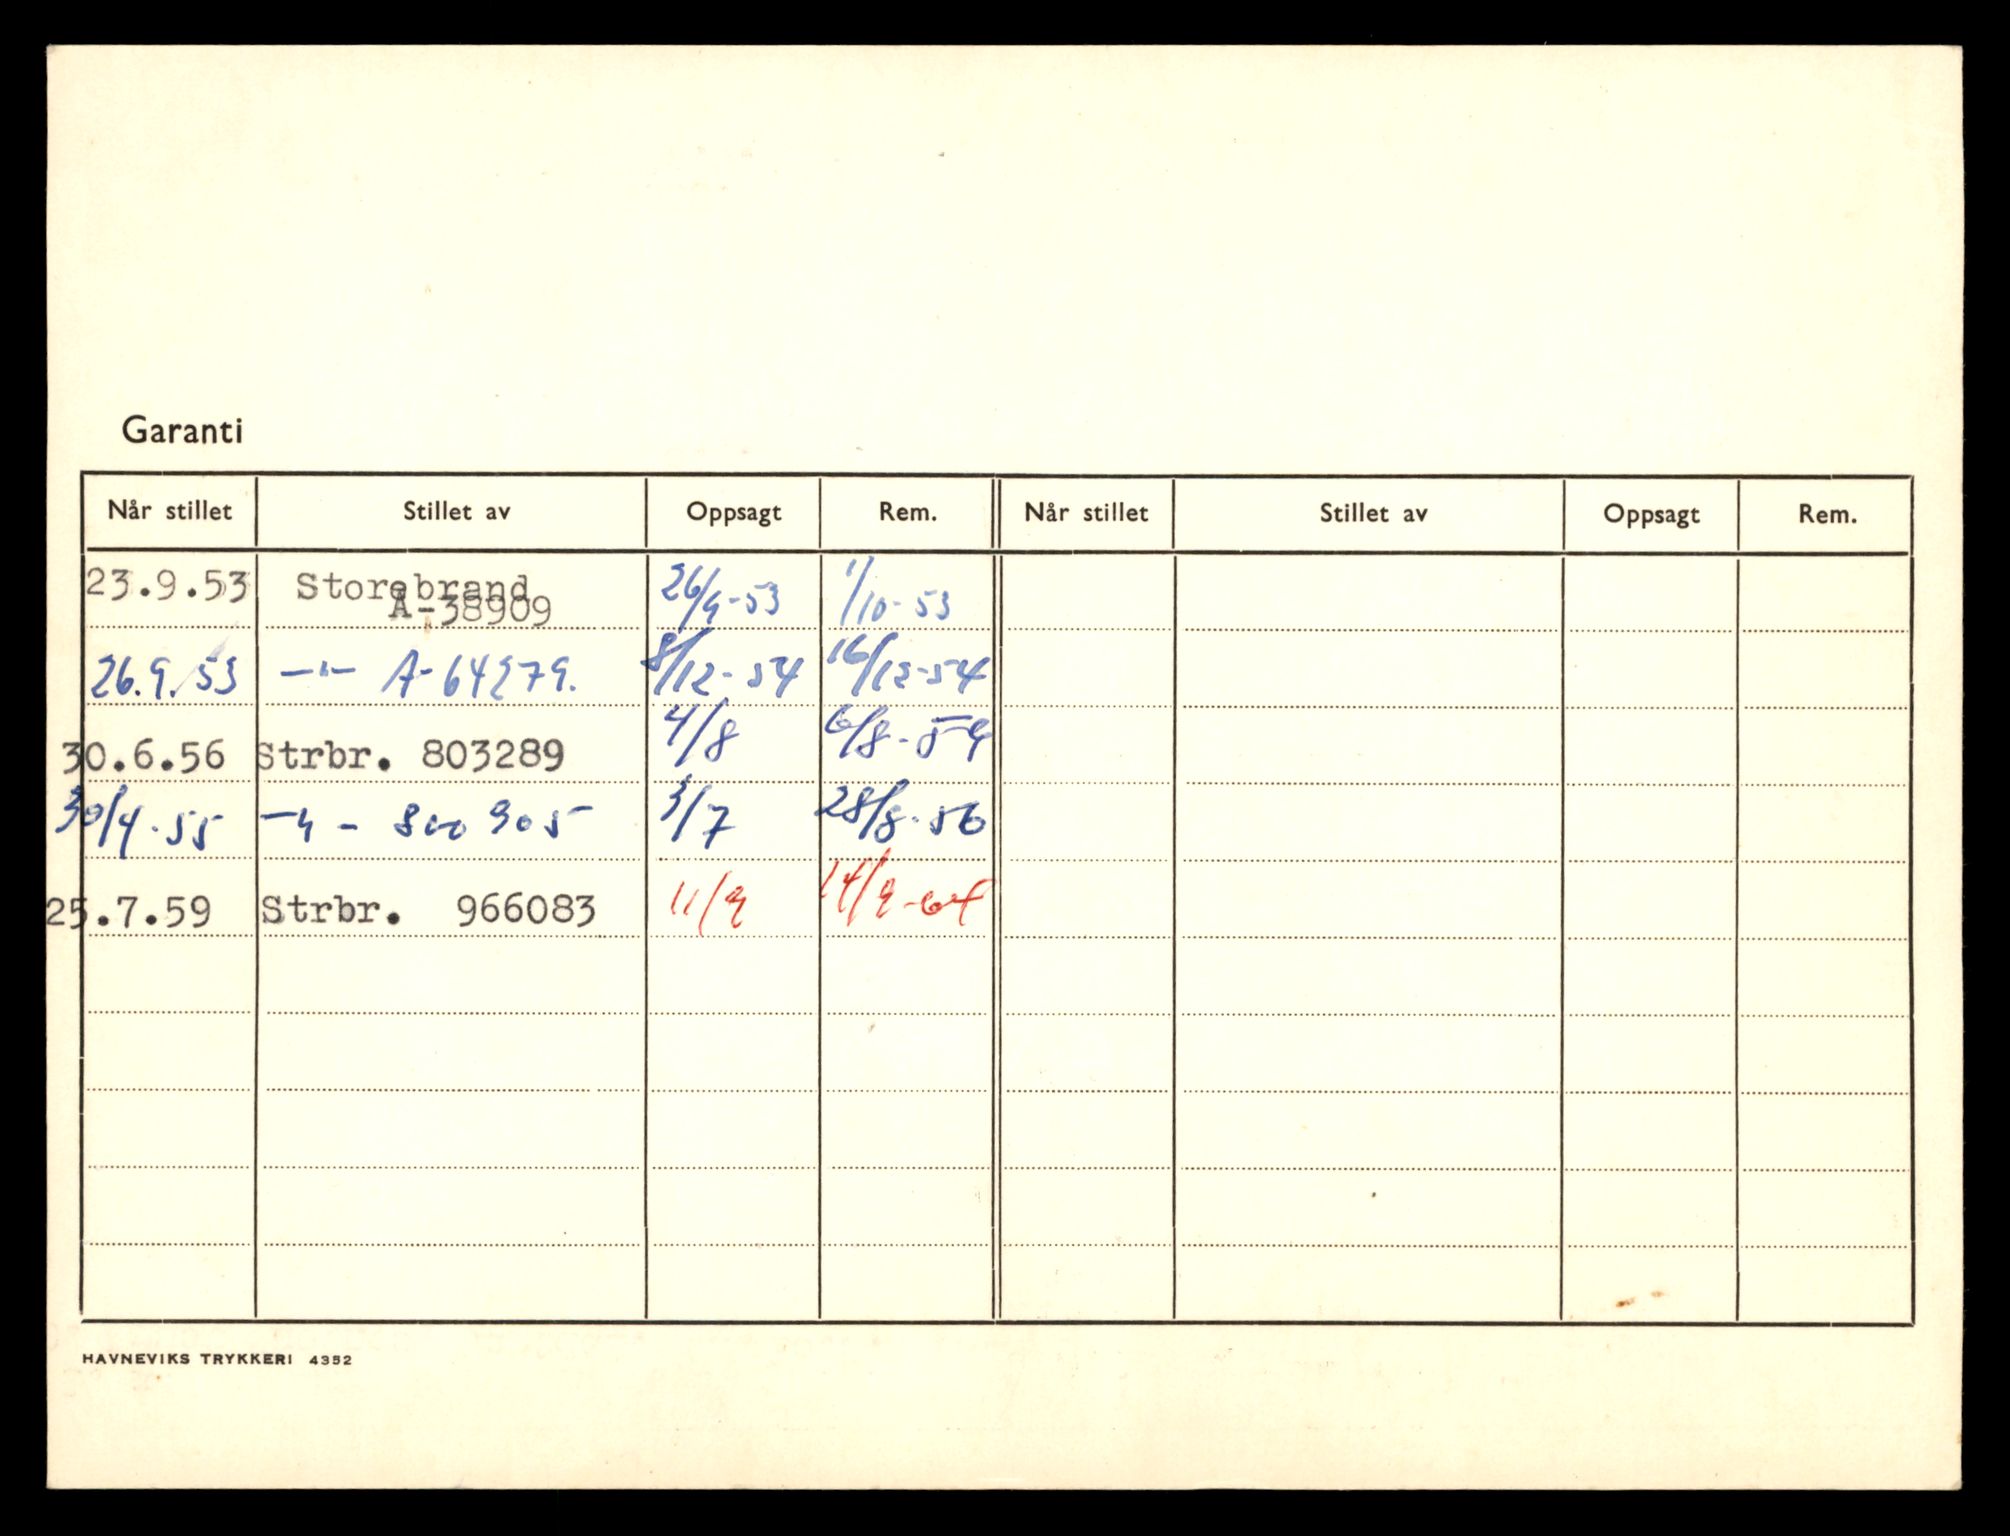 Garanti
Når stillet Stillet av Oppsagt Rem. Når stillet Stillet av Oppsagt Rem.
23.9.53 Storebrand 26/9-53 1/10-53
A-38909
26.9.53 —"— A-64279. 8/12-54 16/12-54
30.6.56 Strbr. 803289 4/8 6/8-59
30/4-55 —"— 800905 3/7 28/8-56
25.7.59 Strbr. 966083 11/9 14/9-64
HAVNEVIKS TRYKKERI 4352